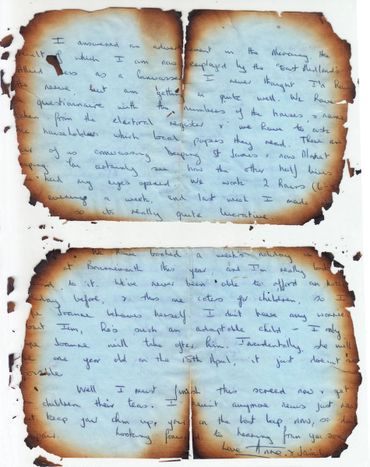 I answered an advertisement in the Mercury the
result of which I am now employed by the "East Midland
Allied Press as a Canvasser. I never thought I'd have
the nerve but am getting on quite well. We have
questionnaire with the numbers of the houses & names
taken from the electoral register & we have to ask
the householders which local papers they read. There are
of us canvassing Keeping St James & now Market
certainly see how the other half lives
had my eyes opened. We work 2 hours
evening a week, and last week I made
so its really quite lucrative.
We have booked a weeks holiday
at Bournemouth this year, and I'm really looking
to it. We've never been able to afford an hotel
holiday before, & this one caters for children, so I
Joanne behaves herself. I don't have any worries
about Ian, he's such an adaptable child - I only
hope Joanne will take after him. Incidentally, she will
be one year old on the 15th April, it just doesn't
possible.
Well I must finish this screed now & get
children their teas. I haven't anymore news just now
keep your chin up, you're on the last lap now, so
Looking forward to hearing from you soon
Love Anne,